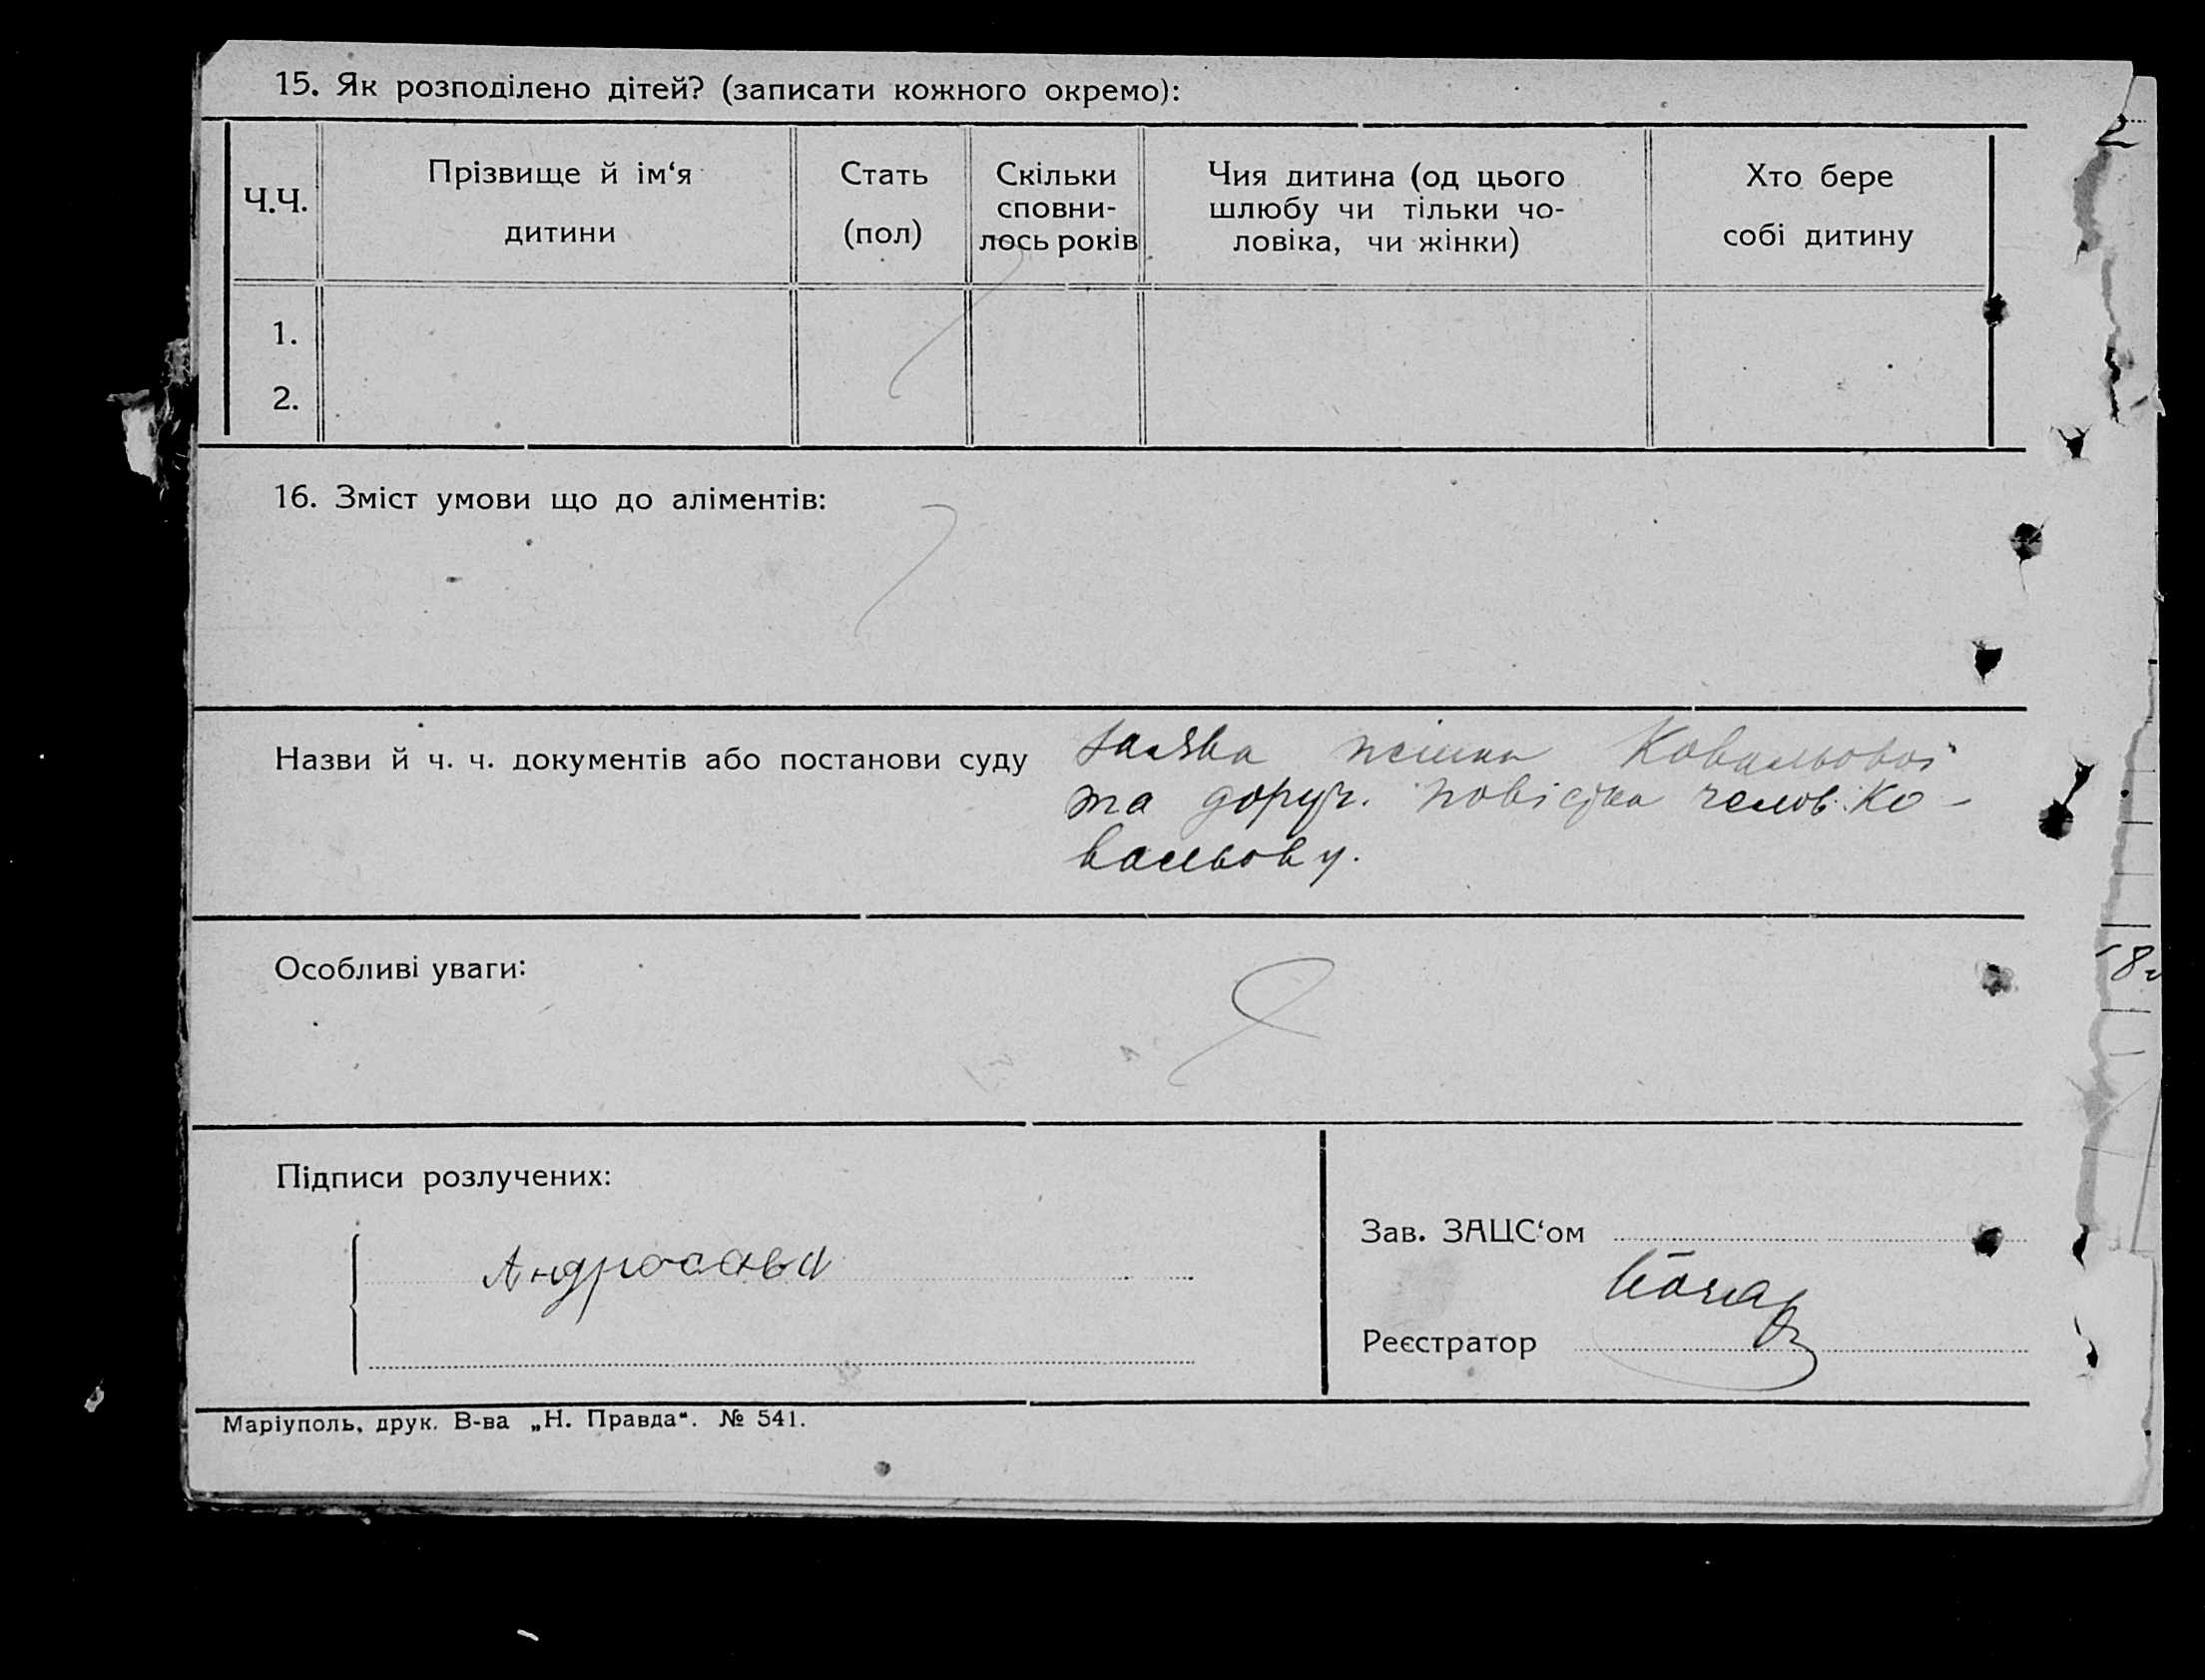 15. Як розподілено дітей? (записати кожного окремо):
Ч.Ч.
Прізвище й ім‘я
дитини
Стать
(пол)
Скільки
сповни-
лось років
Чия дитина (од цього
шлюбу чи тільки чо-
ловіка, чи жінки)
Хто бере
собі дитину
2
1.
2.
16. Зміст умови що до аліментів:
Назви й ч. ч. документів або постанови суду
заява жінки Ковальової
та доруч. повістка Ко-
вальову.
Особливі уваги:
18
Підписи розлучених:
Зав. ЗАЦС‘ом
Реєстратор
Маріуполь, друк. В-ва „Н. Правда“. № 541.